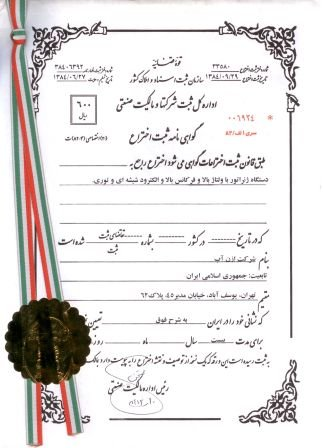 قوه قضائیه
سازمان ثبت اسناد و املاک کشور
شماره ثبت اختراع ۳۳۵۸۰
تاریخ ثبت اختراع ۱۳۸۴/۰۹/۲۹
۳۸۴۰۶۳۹۲
۱۳۸۴/۰۶/۲۷
اداره کل ثبت شرکتها و مالکیت صنعتی
۶۰۰
ریال
۰۰۶۹۲۴
سری الف/۸۲
گواهی نامه ثبت اختراع
طبق قانون ثبت اختراعات گواهی می شود اختراع راجع به
دستگاه ژنراتور با ولتاژ بالا و فرکانس بالا و الکترود شیشه ای و توری.
که در تاریخ -------- در کشور -------- بشماره -------- تقاضای ثبت شده است
ثبت
بنام شرکت ازن آب
تابعیت: جمهوری اسلامی ایران
مقیم تهران، یوسف آباد، خیابان مدبر ۴۵، پلاک ۶۲
که نشانی خود را در ایران به شرح فوق تعیین
برای مدت بیست سال ماه روز
به ثبت رسیده است این ورقه که یک نسخه از توصیف و نقشه اختراع را به پیوست دارد
رئیس اداره مالکیت صنعتی